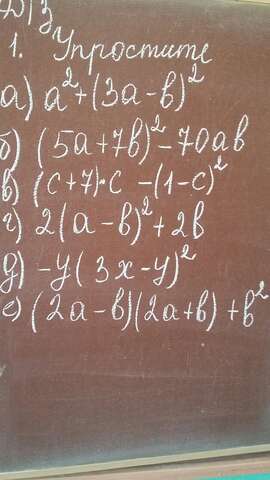 Д/З
1. Упростите
а) a² + (3a - b)²
б) (5a + 7b)² - 70ab
в) (c + 7)·c - (1 - c)²
г) 2(a - b)² + 2b
д) -y(3x - y)²
е) (2a - b)(2a + b) + b²